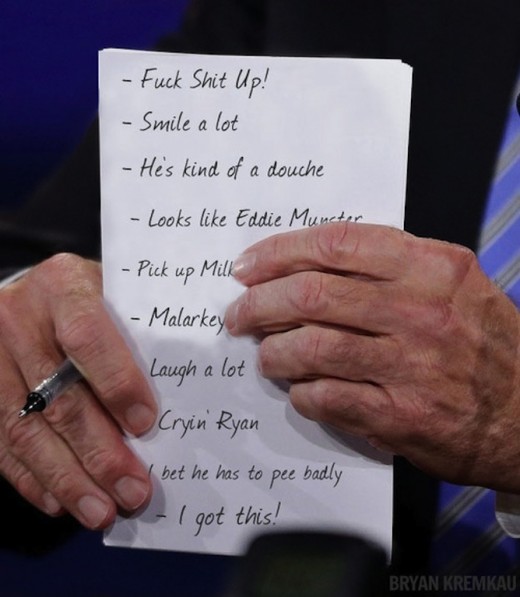 - Fuck Shit Up!
- Smile a lot
- He's kind of a douche
- Looks like Eddie Munster
- Pick up Milk
- Malarkey
Laugh a lot
Cryin' Ryan
I bet he has to pee badly
- I got this!
BRYAN KREMKAU